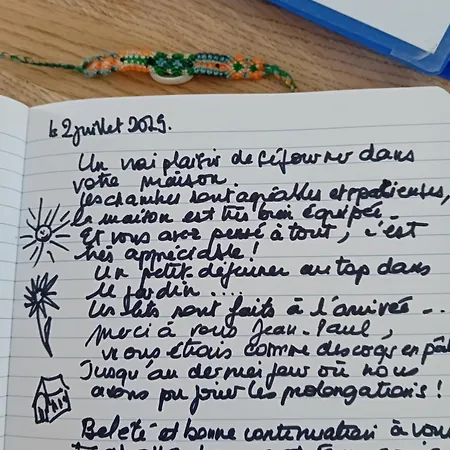 le 2 juillet 2025.
Un vrai plaisir de séjourner dans
votre maison.
Les chambres sont agréables et spacieuses,
la maison est très bien équipée.
Et vous avez pensé à tout, c'est
très appréciable !
Un petit déjeuner au top dans
le jardin ....
Les lits sont faits à l'arrivée ..
merci à vous Jean-Paul,
nous étions comme des coqs en pât
Jusqu'au dernier jour où nous
avons pu jouer les prolongations !
Bel été et bonne continuation à vou